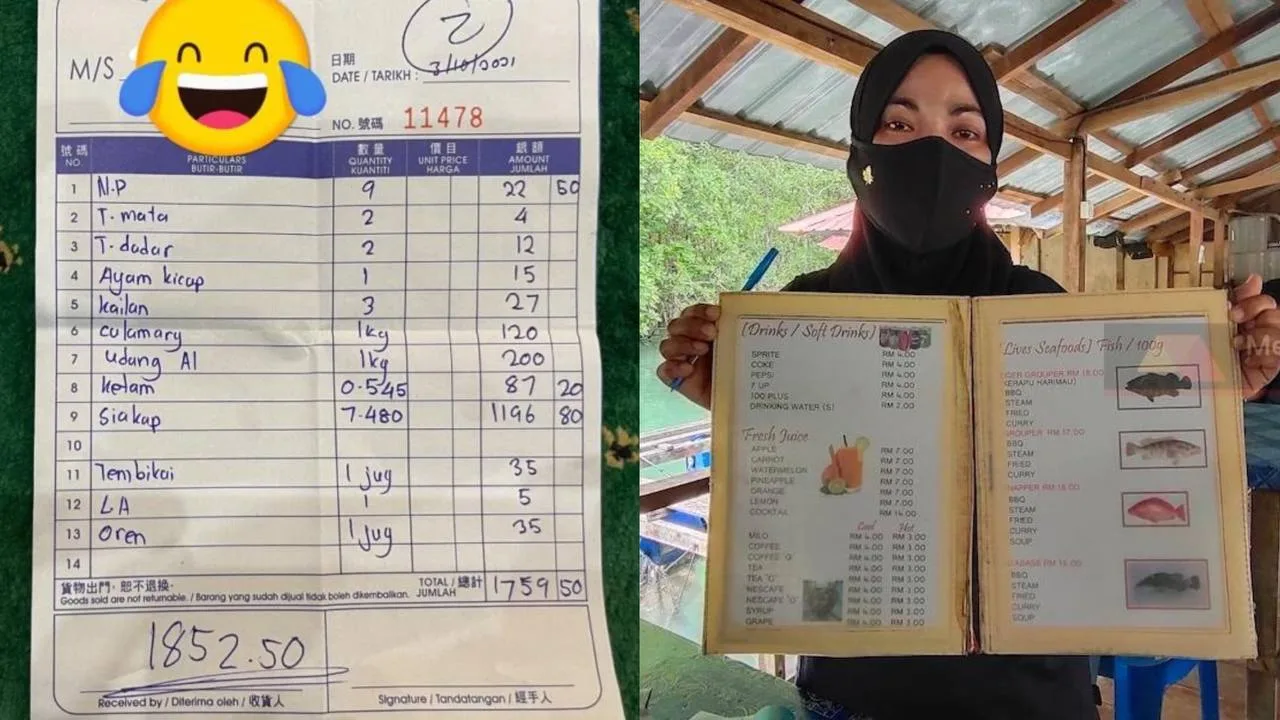 M/S
日期
DATE / TARIKH : 3/10/2021
2
NO. 號碼 11478
號碼 NO. PARTICULARS BUTIR-BUTIR 數量 QUANTITY KUANTITI 價目 UNIT PRICE HARGA 銀額 AMOUNT JUMLAH
1 N.P 9 22 50
2 T. mata 2 4
3 T. dadar 2 12
4 Ayam kicap 1 15
5 kailan 3 27
6 culamary 1kg 120
7 udang A1 1kg 200
8 ketam 0.545 87 20
9 Siakap 7.480 1196 80
10
11 Tembikai 1 jug 35
12 LA 1 5
13 Oren 1 jug 35
14
貨物出門，恕不退換。
Goods sold are not returnable. / Barang yang sudah dijual tidak boleh dikembalikan.
TOTAL / 總計 JUMLAH 1759 50
1852.50
Received by / Diterima oleh / 收貨人
Signature / Tandatangan / 經手人
[Drinks / Soft Drinks]
SPRITE RM 4.00
COKE RM 4.00
PEPSI RM 4.00
7 UP RM 4.00
100 PLUS RM 4.00
DRINKING WATER (S) RM 2.00
Fresh Juice
APPLE RM 7.00
CARROT RM 7.00
WATERMELON RM 7.00
PINEAPPLE RM 7.00
ORANGE RM 7.00
LEMON RM 7.00
COCKTAIL RM 14.00
Cool Hot
MILO RM 4.00 RM 3.00
COFFEE RM 4.00 RM 3.00
COFFEE "O" RM 4.00 RM 3.00
TEA RM 4.00 RM 3.00
TEA "O" RM 4.00 RM 3.00
NESCAFE RM 4.00 RM 3.00
NESCAFE "O" RM 4.00 RM 3.00
SYRUP RM 4.00 RM 3.00
GRAPE RM 4.00 RM 3.00
Lives Seafoods] Fish / 100g
GROUPER RM 18.00
KERAPU HARIMAU)
BBQ
STEAM
FRIED
CURRY
GROUPER RM 17.00
BBQ
STEAM
FRIED
CURRY
RM 18.00
BBQ
STEAM
FRIED
CURRY
SOUP
BBQ
STEAM
FRIED
CURRY
SOUP
Me